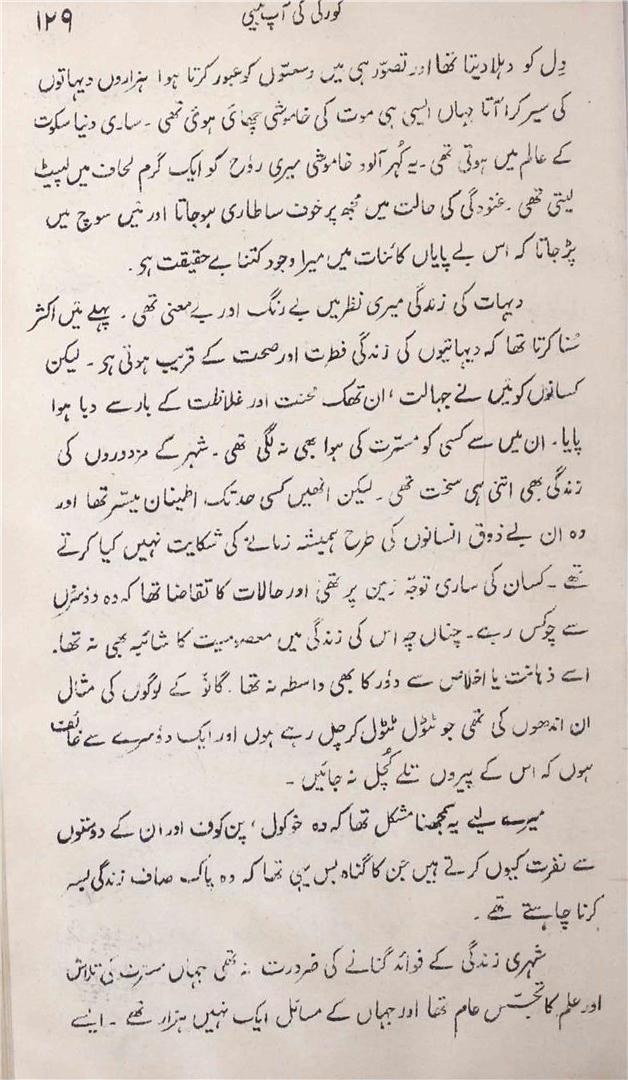 گورکی کی آپ بیتی
۱۲۹
دِل کو دہلا دیتا تھا اور تصوّر ہی میں وسعتوں کو عبور کرتا ہوا ہزاروں دیہاتوں
کی سیر کرا آتا جہاں ایسی ہی موت کی خاموشی چھائی ہوئی تھی ۔ ساری دنیا سکوت
کے عالم میں ہوتی تھی ۔ یہ کُہر آلود خاموشی میری رُوح کو ایک گرم لحاف میں لپیٹ
لیتی تھی ۔ غنودگی کی حالت میں مجھ پر خوف سا طاری ہو جاتا اور مَیں سوچ میں
پڑ جاتا کہ اس بے پایاں کائنات میں میرا وجود کتنا بے حقیقت ہی ۔
دیہات کی زندگی میری نظر میں بے رنگ اور بے معنی تھی ۔ پہلے مَیں اکثر
سُنا کرتا تھا کہ دیہاتیوں کی زندگی فطرت اور صحت کے قریب ہوتی ہی ۔ لیکن
کسانوں کو مَیں نے جہالت ، ان تھک محنت اور غلاظت کے بار سے دبا ہوا
پایا ۔ ان میں سے کسی کو مسرّت کی ہوا بھی نہ لگی تھی ۔ شہر کے مزدوروں کی
زندگی بھی اتنی ہی سخت تھی ۔ لیکن انھیں کسی حد تک اطمینان میسّر تھا اور
وہ ان بے ذوق انسانوں کی طرح ہمیشہ زمانے کی شکایت نہیں کیا کرتے
تھے ۔ کسان کی ساری توجّہ زمین پر تھی اور حالات کا تقاضا تھا کہ وہ دوٗسروں
سے چوکس رہے ۔ چناں چہ اس کی زندگی میں معصومیت کا شائبہ بھی نہ تھا ۔
اسے ذہانت یا اخلاص سے دوٗر کا بھی واسطہ نہ تھا ۔ گانوٗ کے لوگوں کی مثال
ان اندھوں کی تھی جو ٹٹول ٹٹول کر چل رہے ہوں اور ایک دوٗسرے سے خائف
ہوں کہ اس کے پیروں تلے کُچل نہ جائیں ۔
میرے لیے یہ سمجھنا مشکل تھا کہ وہ خوکول ، پن کوف اور ان کے دوستوں
سے نفرت کیوں کرتے ہیں جن کا گناہ بس یہی تھا کہ وہ پاک صاف زندگی بسر
کرنا چاہتے تھے ۔
شہری زندگی کے فوائد گنانے کی ضرورت نہ تھی جہاں مسرّت کی تلاش
اور علم کا تجسّس عام تھا اور جہاں کے مسائل ایک نہیں ہزار تھے ۔ ایسے